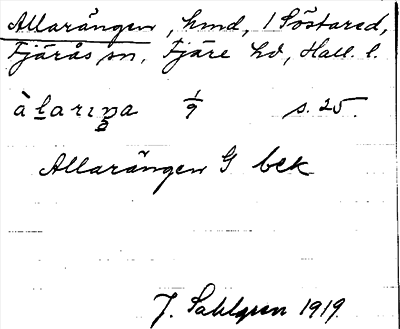 Allarängen, hmd, 1 Söstared,
Fjärås sn, Fjäre hd, Hall. l.
1/9 s. 25.
Allarängen G bek
J. Sahlgren 1919.